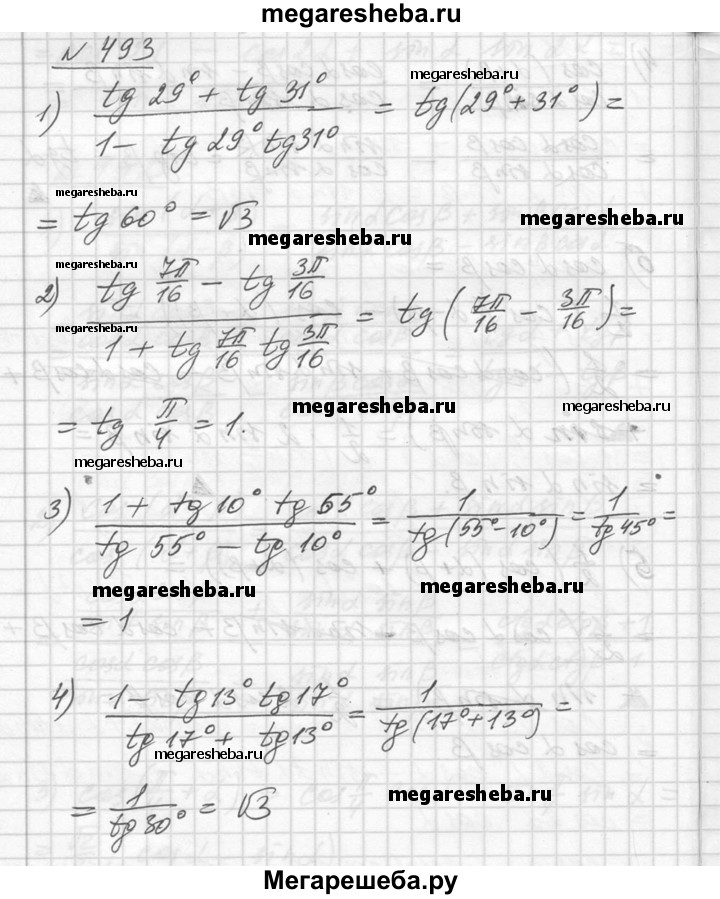 megaresheba.ru
№ 493
1) (tg 29° + tg 31°)/(1 - tg 29° tg 31°) = tg(29° + 31°) =
megaresheba.ru
megaresheba.ru
= tg 60° = √3
megaresheba.ru
megaresheba.ru
megaresheba.ru
2) (tg 7π/16 - tg 3π/16)/(1 + tg 7π/16 tg 3π/16) = tg(7π/16 - 3π/16) =
megaresheba.ru
megaresheba.ru
megaresheba.ru
= tg π/4 = 1.
megaresheba.ru
3) (1 + tg 10° tg 55°)/(tg 55° - tg 10°) = 1/tg(55° - 10°) = 1/tg 45° =
megaresheba.ru
megaresheba.ru
= 1
4) (1 - tg 13° tg 17°)/(tg 17° + tg 13°) = 1/tg(17° + 13°) =
megaresheba.ru
= 1/tg 30° = √3
megaresheba.ru
Мегарешеба.ру